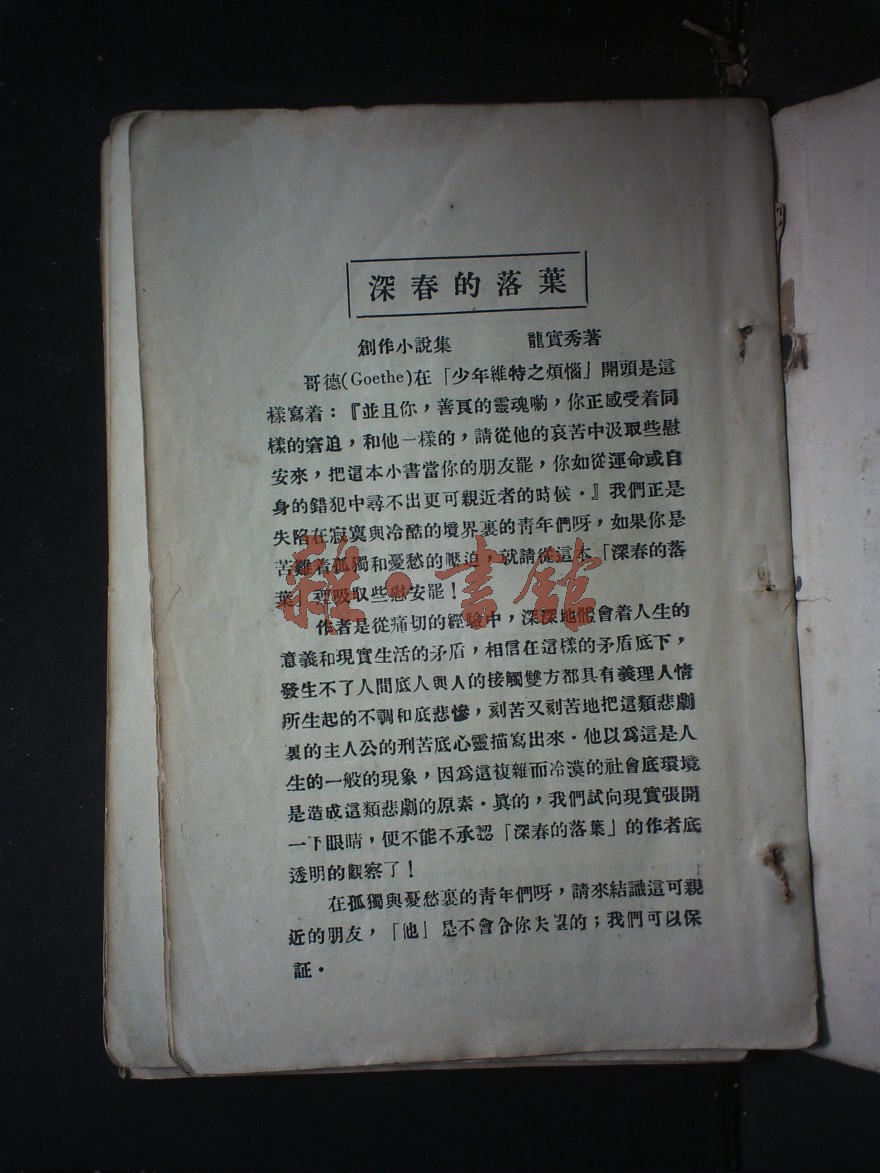 深春的落葉
創作小說集 龍實秀著
哥德(Goethe)在「少年維特之煩惱」開頭是這
樣寫着：『並且你，善良的靈魂喲，你正感受着同
樣的窘迫，和他一樣的，請從他的哀苦中汲取些慰
安來，把這本小書當你的朋友罷，你如從運命或自
身的錯犯中尋不出更可親近者的時候．』我們正是
失陷在寂寞與冷酷的境界裏的靑年們呀，如果你是
苦難着孤獨和憂愁的壓迫，就請從這本「深春的落
葉」裡吸取些慰安罷！
作者是從痛切的經驗中，深深地體會着人生的
意義和現實生活的矛盾，相信在這樣的矛盾底下，
發生不了人間底人與人的接觸雙方都具有義理人情
所生起的不調和底悲慘，刻苦又刻苦地把這類悲劇
裏的主人公的刑苦底心靈描寫出來．他以爲這是人
生的一般的現象，因爲這複雜而冷漠的社會底環境
是造成這類悲劇的原素．眞的，我們試向現實張開
一下眼睛，便不能不承認「深春的落葉」的作者底
透明的觀察了！
在孤獨與憂愁裏的靑年們呀，請來結識這可親
近的朋友，「他」是不會令你失望的；我們可以保
証．
雜·書館